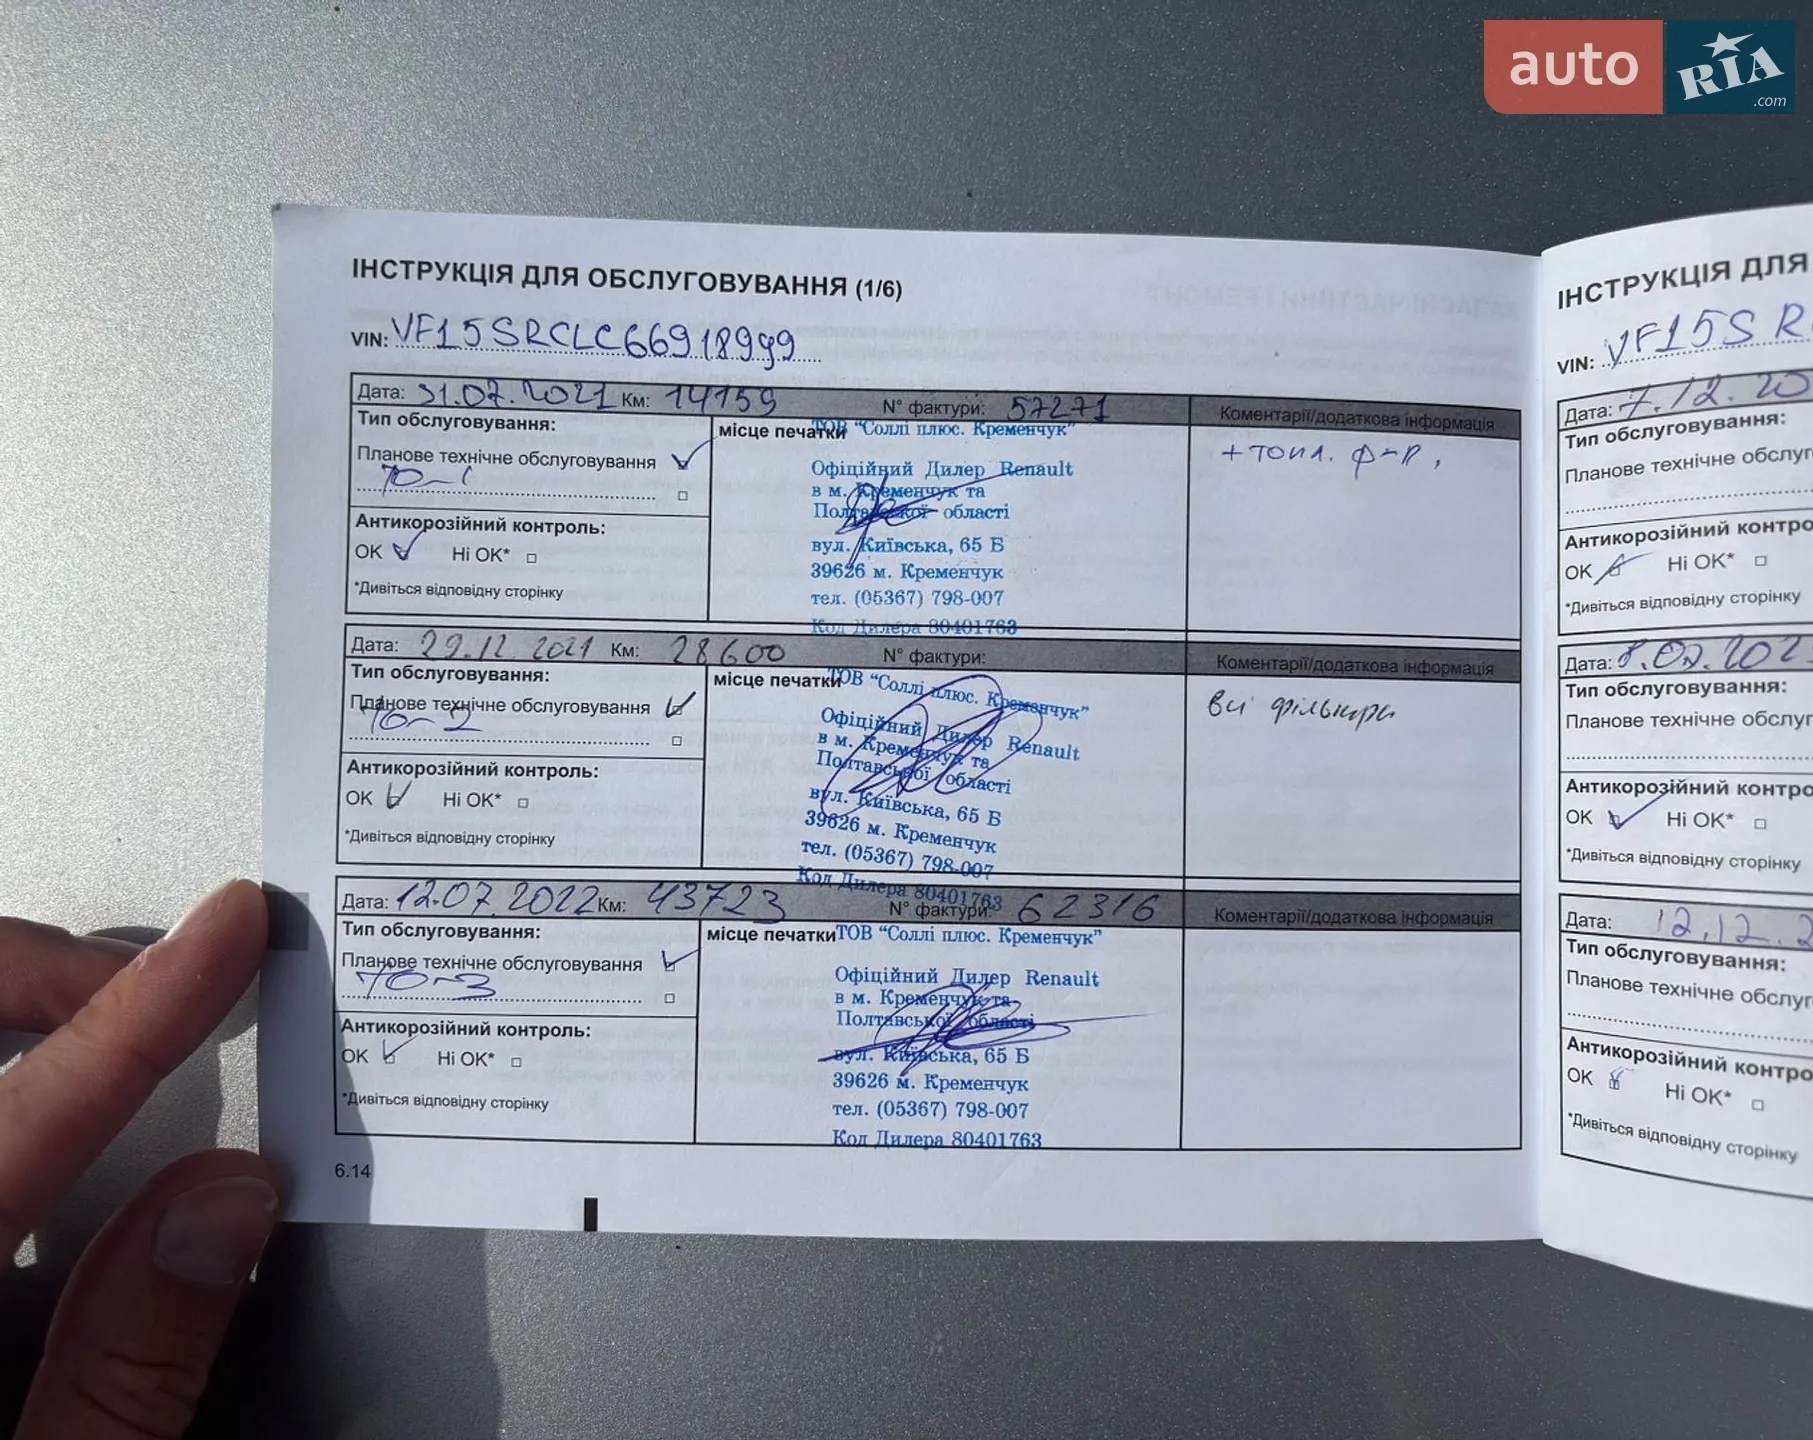 auto
RIA
.com
ІНСТРУКЦІЯ ДЛЯ ОБСЛУГОВУВАННЯ (1/6)
VIN: VF15SRCLC66918999
Дата: 31.07.2021 Км: 14159 N° фактури: 57271 Коментарі/додаткова інформація
Тип обслуговування:
Планове технічне обслуговування
ТО-1
Антикорозійний контроль:
OK Ні OK*
*Дивіться відповідну сторінку
місце печатки
ТОВ "Соллі плюс. Кременчук"
Офіційний Дилер Renault
в м. Кременчук та
Полтавської області
вул. Київська, 65 Б
39626 м. Кременчук
тел. (05367) 798-007
Код Дилера 80401763
+ топл. ф-р,
Дата: 29.12.2021 Км: 28600 N° фактури: Коментарі/додаткова інформація
Тип обслуговування:
Планове технічне обслуговування
ТО-2
Антикорозійний контроль:
OK Ні OK*
*Дивіться відповідну сторінку
місце печатки
ТОВ "Соллі плюс. Кременчук"
Офіційний Дилер Renault
в м. Кременчук та
Полтавської області
вул. Київська, 65 Б
39626 м. Кременчук
тел. (05367) 798-007
Код Дилера 80401763
всі фільтри
Дата: 12.07.2022 Км: 43723 N° фактури: 62316 Коментарі/додаткова інформація
Тип обслуговування:
Планове технічне обслуговування
ТО-3
Антикорозійний контроль:
OK Ні OK*
*Дивіться відповідну сторінку
місце печатки
ТОВ "Соллі плюс. Кременчук"
Офіційний Дилер Renault
в м. Кременчук та
Полтавської області
вул. Київська, 65 Б
39626 м. Кременчук
тел. (05367) 798-007
Код Дилера 80401763
6.14
ІНСТРУКЦІЯ ДЛЯ
VIN: VF15SR
Дата: 7.12.20
Тип обслуговування:
Планове технічне обслуг
Антикорозійний контро
OK Ні OK*
*Дивіться відповідну сторінку
Дата: 8.07.202
Тип обслуговування:
Планове технічне обслуг
Антикорозійний контро
OK Ні OK*
*Дивіться відповідну сторінку
Дата: 12.12.2
Тип обслуговування:
Планове технічне обслуг
Антикорозійний контро
OK Ні OK*
*Дивіться відповідну сторінку